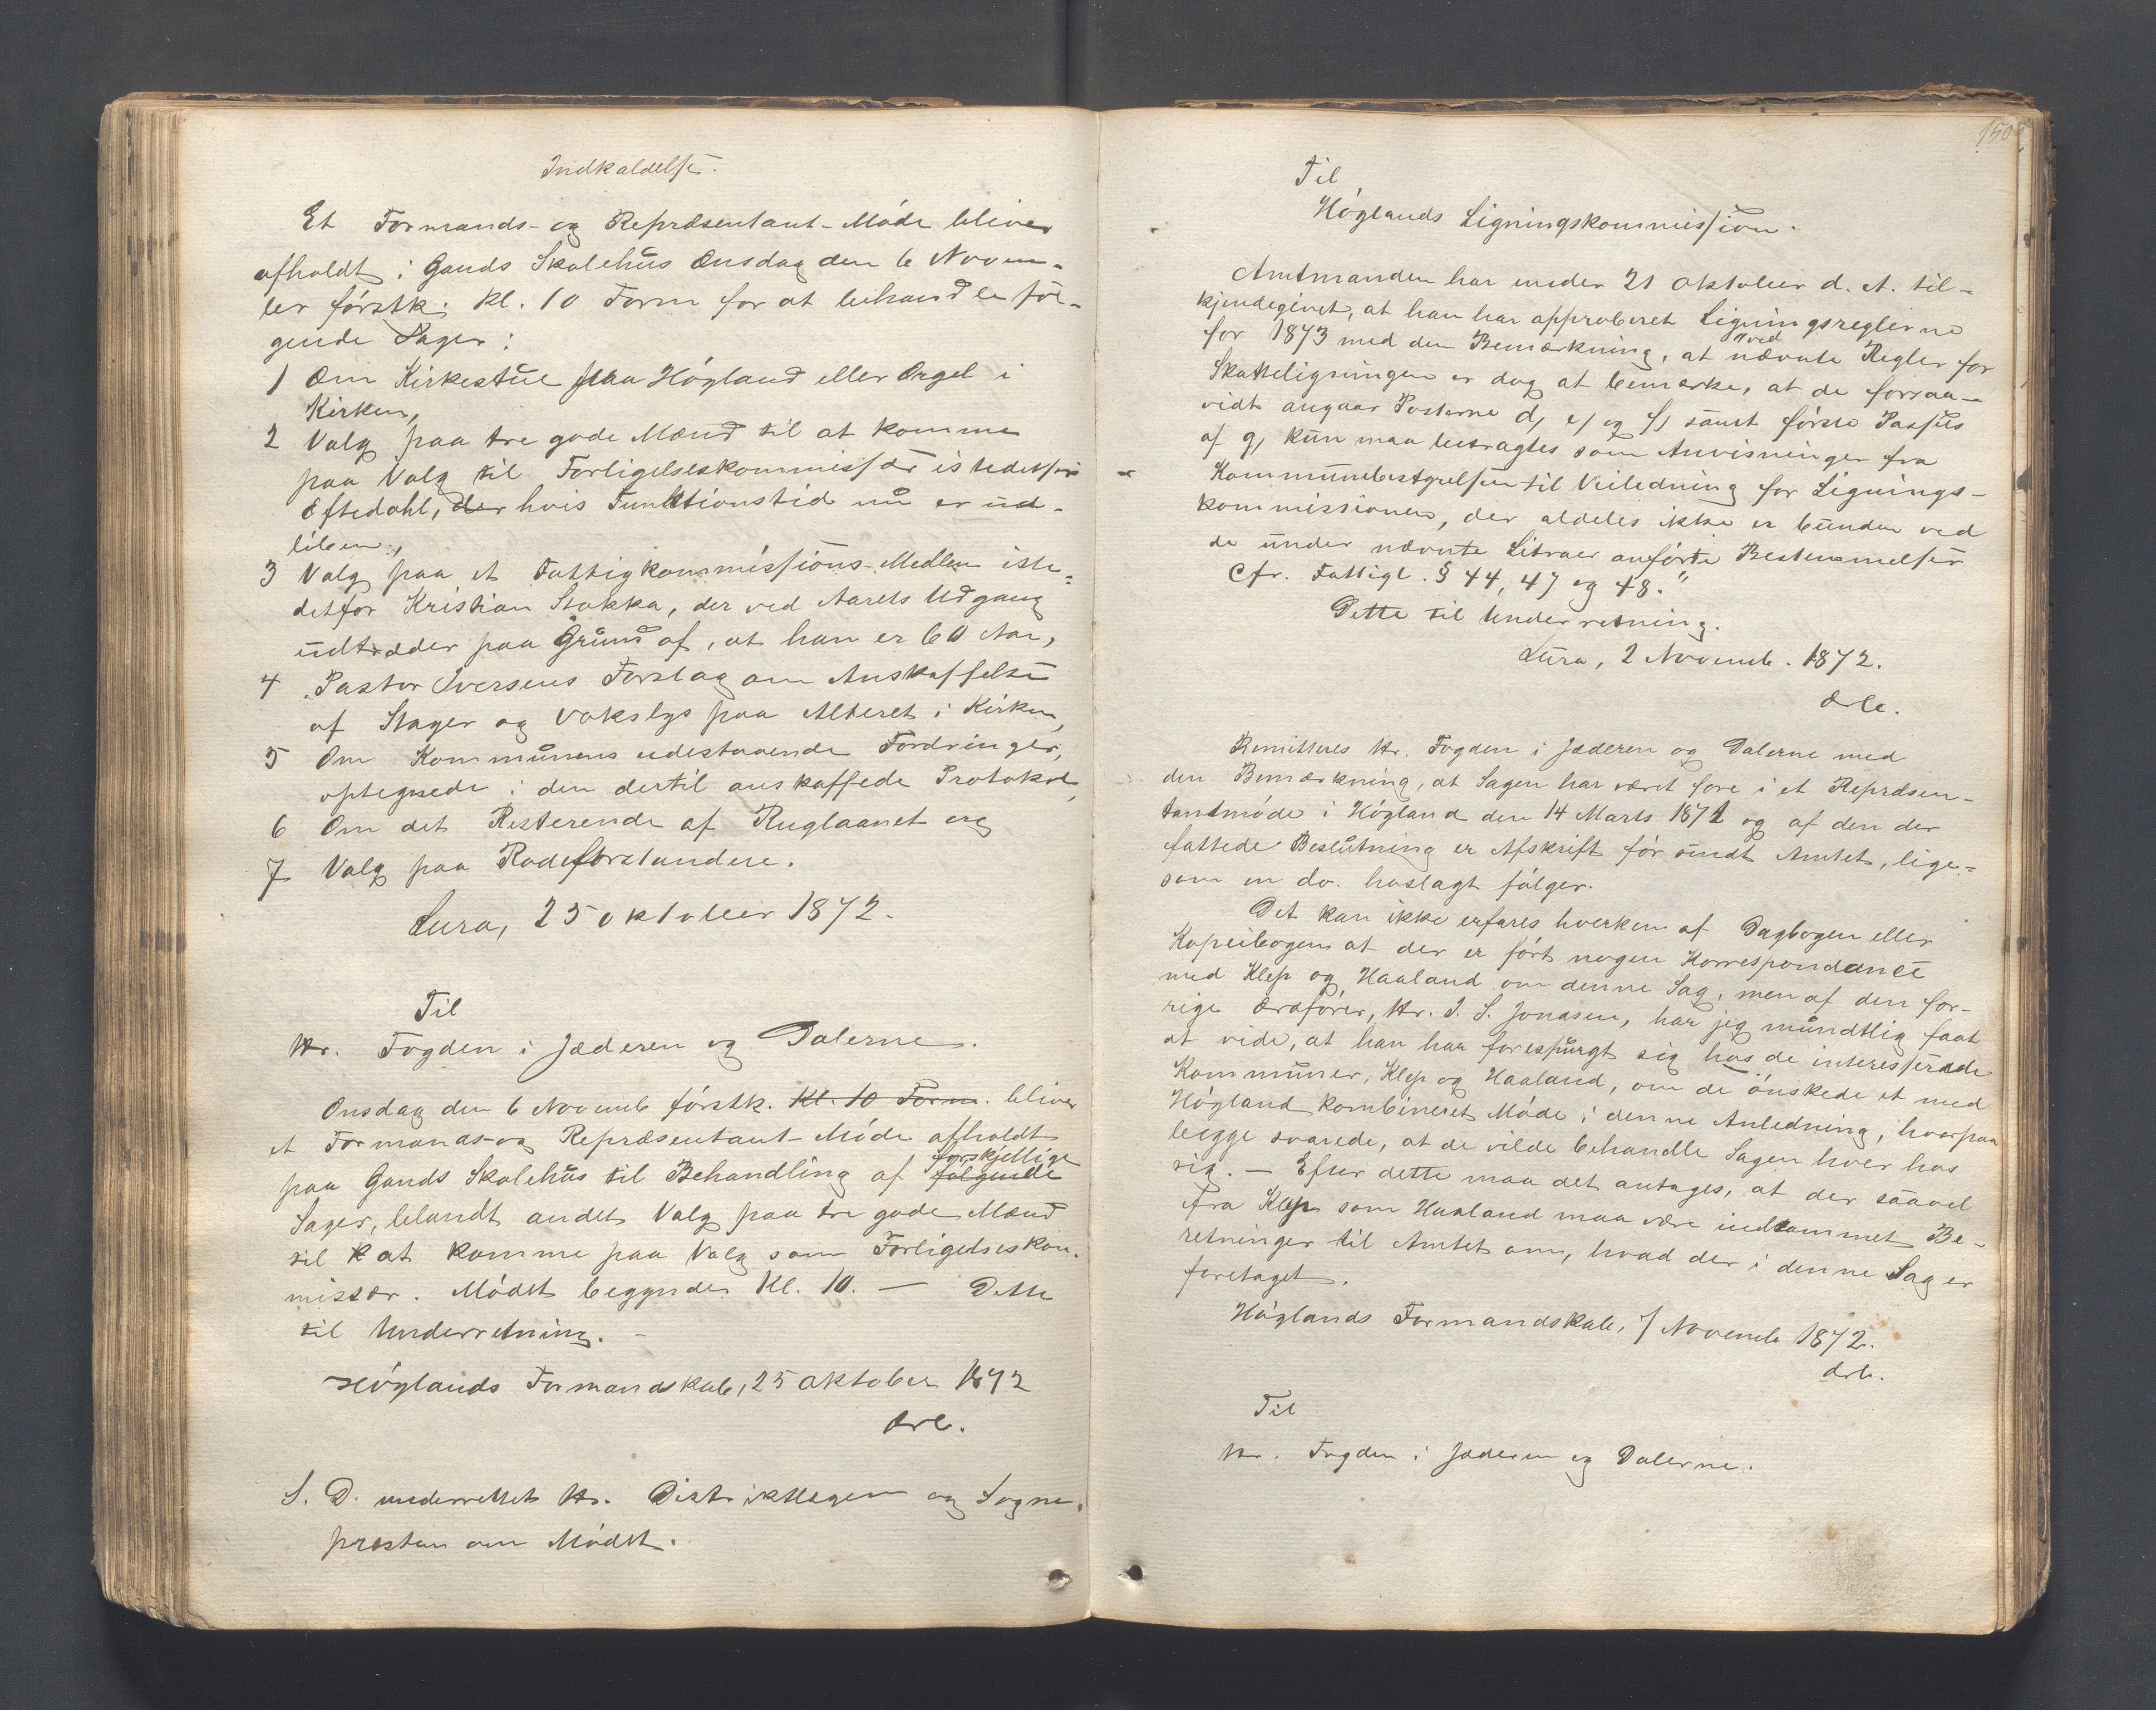 Indkaldelse.
Et Formands- og Repræsentant-Møde bliver
afholdt i Gands Skolehus Onsdag den 6 Novem-
ber førstk. Kl. 10 Form for at behandle føl-
gende Sager:
1 Om Kirkestue paa Høgland eller Orgel i
Kirken,
2 Valg paa tre gode Mænd til at komme
paa Valg til Forligelseskommissær istedetfor
Eftedahl, der hvis Funktionstid nu er ud-
løben,
3 Valg paa et Fattigkommissions-Medlem iste-
detfor Kristian Stokka, der ved Aarets Udgang
udtræder paa Grund af, at han er 60 Aar,
4 Pastor Iversens Forslag om Anskaffelse
af Stager og Vokslys paa Alteret i Kirken,
5 Om Kommunens udestaaende Fordringer,
optegnede i den dertil anskaffede Protokol,
6 Om det Resterende af Ruglaanet og
7 Valg paa Rodeforstandere.
Lura, 25 oktober 1872.
Til
Hr. Fogden i Jæderen og Dalerne.
Onsdag den 6 Novemb førstk. Kl. 10 Form. bliver
et Formands- og Repræsentant-Møde afholdt
forskjellige
paa Gands Skolehus til Behandling af følgende
Sager, blandt andet Valg paa tre gode Mænd
til k at komme paa Valg som Forligelseskom-
missær. Mødet begynder Kl. 10. — Dette
til Underretning. –
Høglands Formandskab, 25 oktober 1872
ærb.
S. D. underrettet Hr. Distriktslægen og Sogne-
presten om Mødet.
150
Til
Høglands Ligningskommission.
Amtmanden har under 21 oktober d. A. til-
kjendegivet, at han har approberet Ligningsreglerne
for 1873 med den Bemærkning, at ved nævnte Regler for
Skatteligningen er dog at bemærke, at de forsaa-
vidt angaar Posterne d, e, og f, samt første Passus
af g, kun maa betragtes som Anvisninger fra
Kommunebestyrelsen til Veiledning for Lignings-
kommissionen, der aldeles ikke er bunden ved
de under nævnte Litraer anførte Bestemmelser
Cfr. Fattigl. § 44, 47 og 48."
Dette til Underretning.
Lura, 2 Novemb. 1872.
ærb.
Remitteres Hr. Fogden i Jæderen og Dalerne med
den Bemærkning, at Sagen har været fore i et Repræsen-
tantmøde i Høgland den 14 Marts 1872 og af den der
fattede Beslutning er Afskrift før sendt Amtet, lige-
som en do. hoslagt følger.
Det kan ikke erfares hverken af Dagbogen eller
Kopeibogen at der er ført nogen Korrespondance
med Klep og Haaland om denne Sag, men af den for-
rige Ordfører, Hr. I. S. Jonasen, har jeg mundtlig faat
at vide, at han har forespurgt sig hos de interesserede
Kommuner, Klep og Haaland, om de ønskede et med
Høgland kombineret Møde i denne Anledning, hvorpaa
begge svarede, at de vilde behandle Sagen hver hos
sig. — Efter dette maa det antages, at der saavel
fra Klep som Haaland maa være indkommet Be-
retninger til Amtet om, hvad der i denne Sag er
foretaget.
Høglands Formandskab, 7 Novemb 1872.
ærb.
Til
Hr. Fogden i Jæderen og Dalerne.